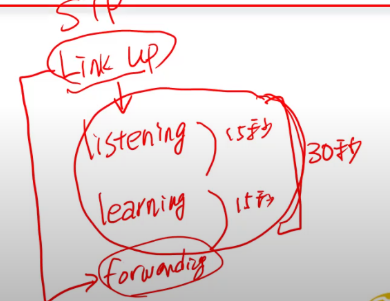 STP
Link up
listening 15秒
30秒
learning 15秒
forwarding